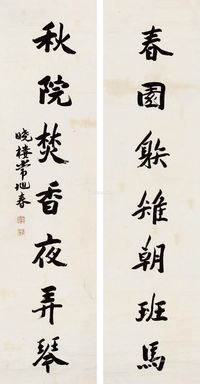 春園䠶雉朝班馬
秋院焚香夜弄琴
曉樓常旭春